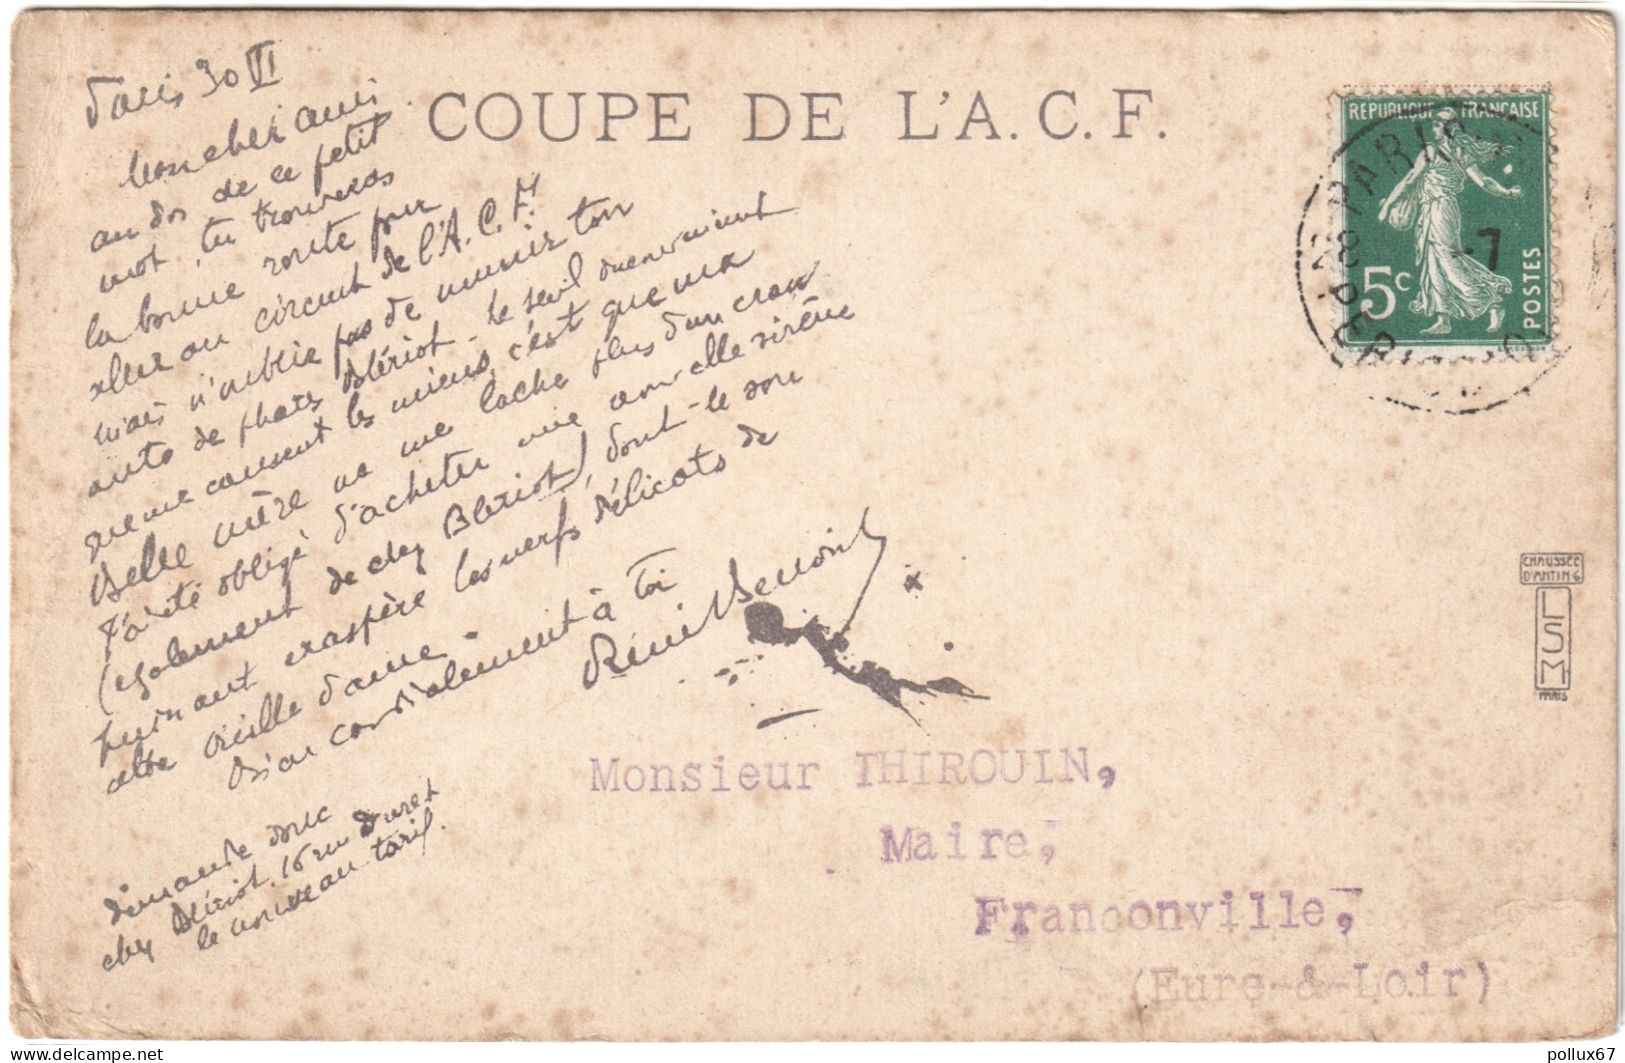 COUPE DE L'A.C.F.
Paris 30 VI
Mon cher ami
au dos de ce petit
mot, tu trouveras
la bonne route pour
aller au circuit de l'A.C.F.
mais n'oublie pas de munir ton
auto de phares Blériot - le seul
que me causent les miens, c'est que ma
Belle mère ne me lache plus d'un cran
J'ai été obligé d'acheter une nouvelle sirène
(également de chez Blériot) dont le son
puissant exaspère les nerfs délicats de
cette vieille dame.
Bien cordialement à toi
René Benoist
demande donc
chez Blériot. 16 rue Duret
le nouveau tarif.
REPUBLIQUE FRANÇAISE
5c
POSTES
PARIS
-7
CHAUSSÉE
D'ANTIN 6
LSM
PARIS
Monsieur THIROUIN,
Maire,
Franconville,
(Eure-&-Loir)
delcampe.net
pollux67